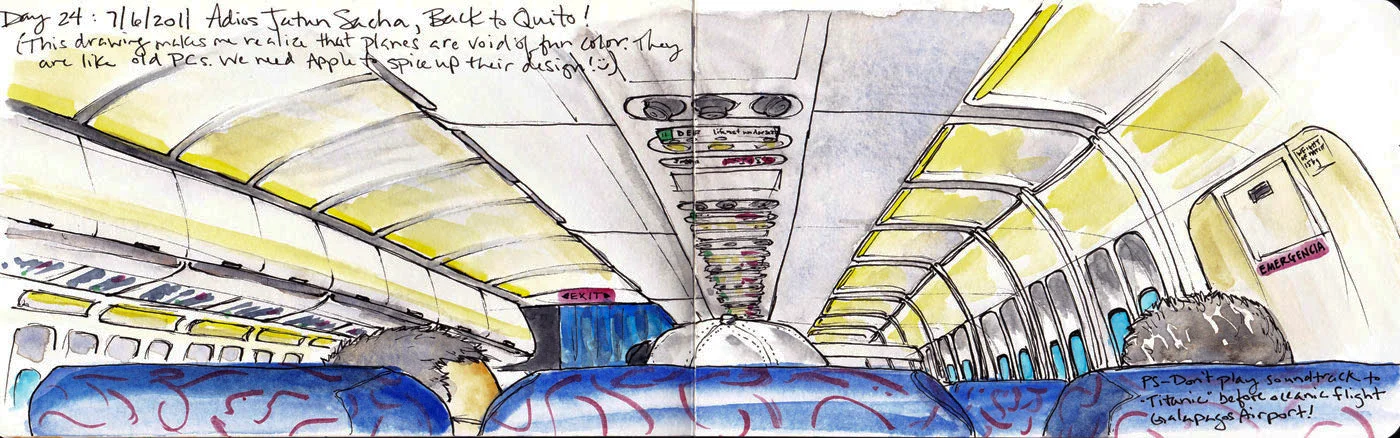 Day 24 : 7/6/2011 Adios Jatun Sacha, Back to Quito!
(This drawing makes me realize that planes are void of fun color. They
are like old PCs. We need Apple to spice up their design! :))
EXIT
EMERGENCIA
PS-Don't play soundtrack to
"Titanic" before oceanic flight
Galapagos Airport!